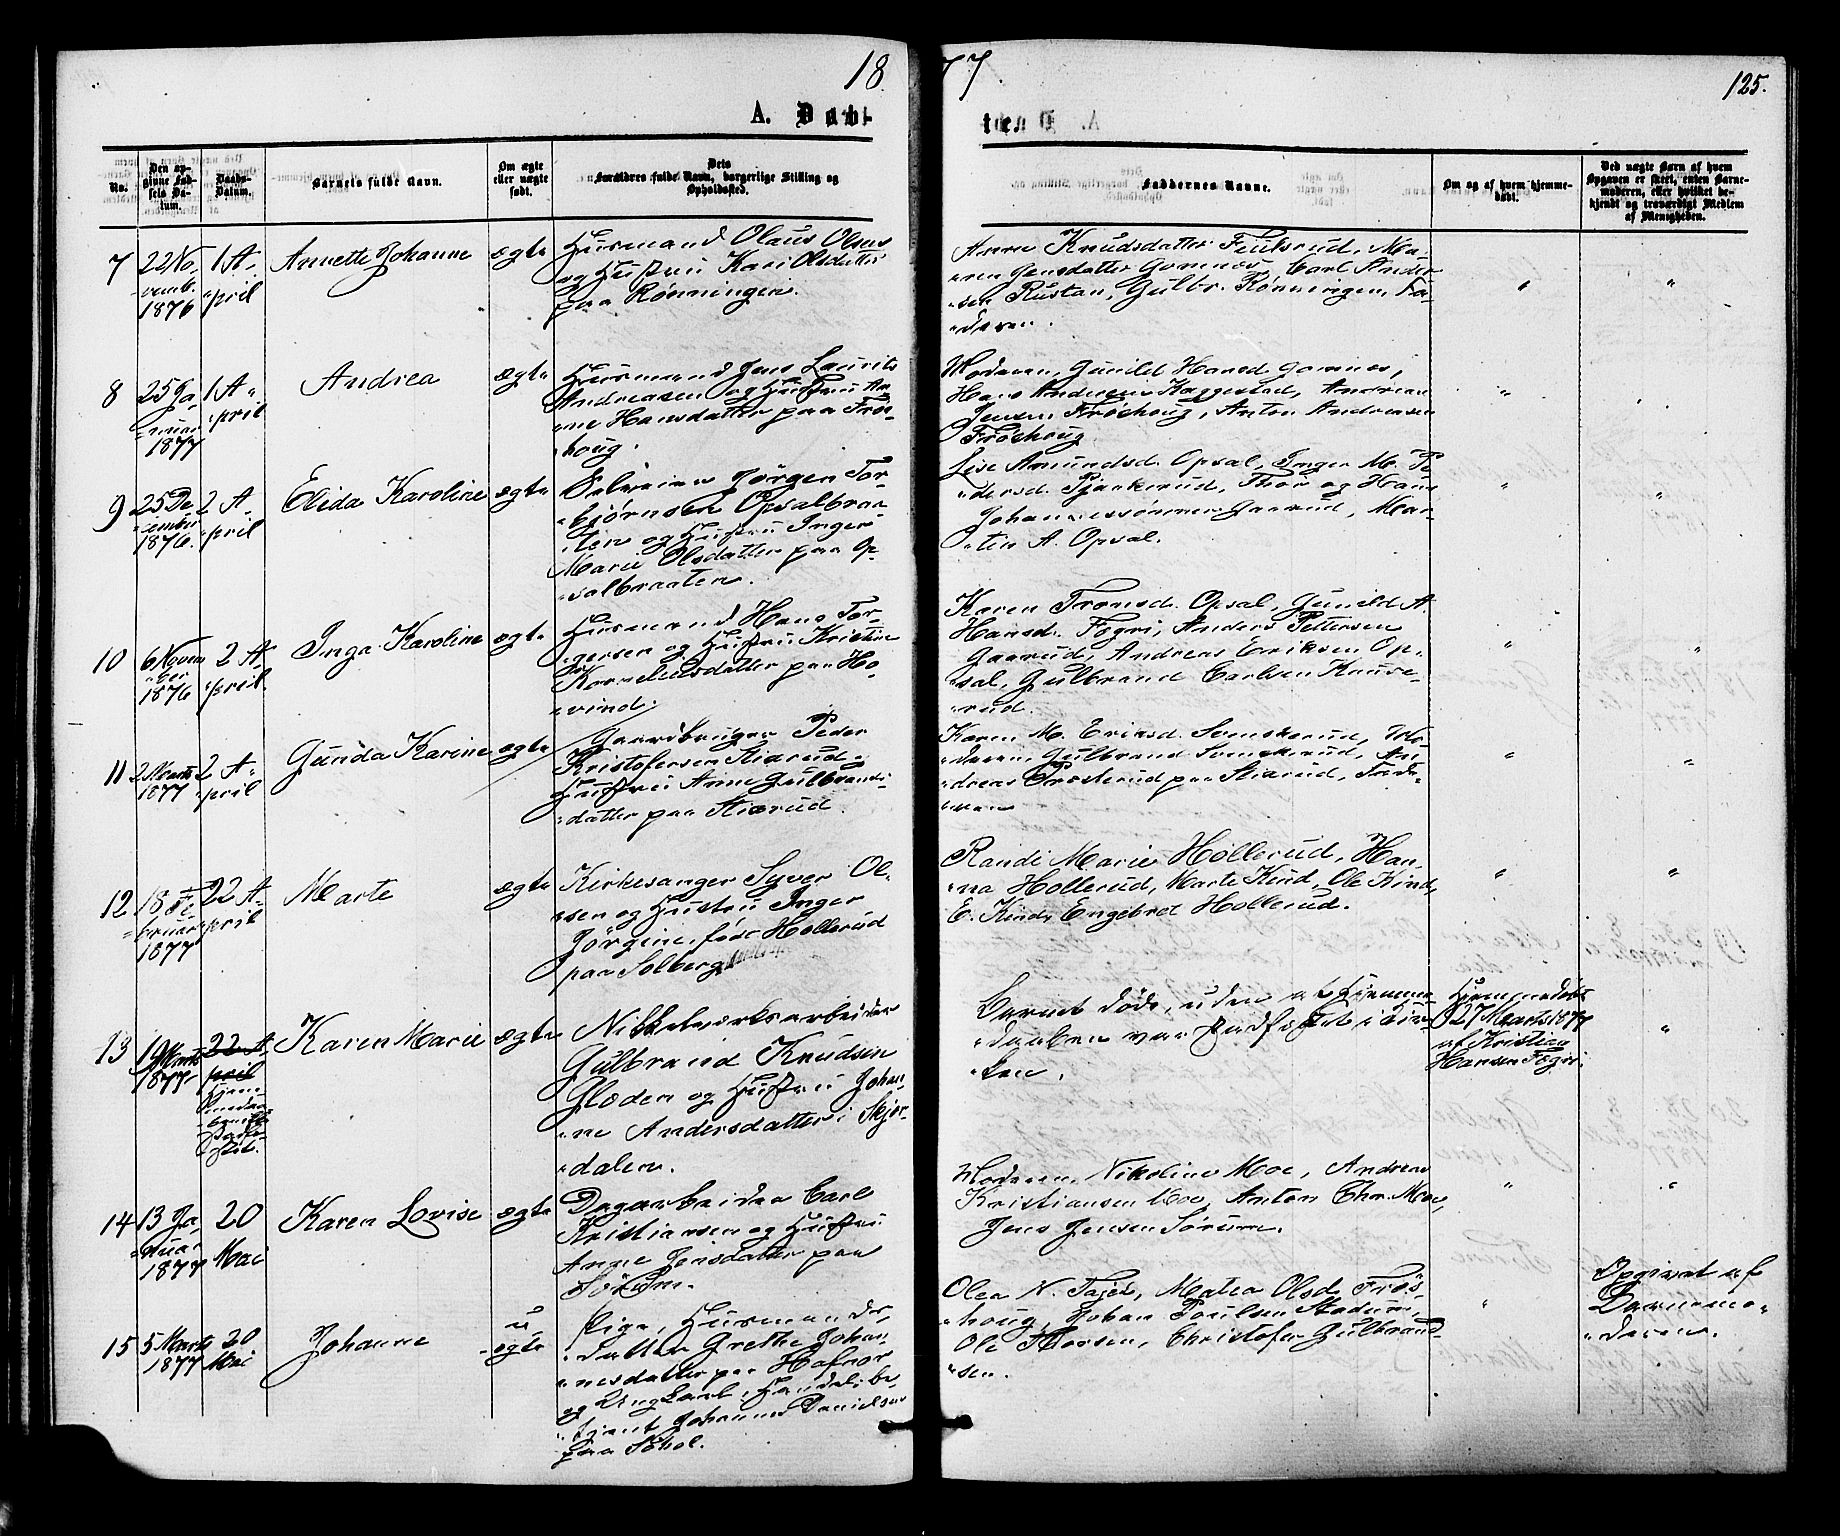 18
77
125.
A. Døbt
No.
Den opgivne Fødsels Datum.
Daabs-Datum.
Barnets fulde Navn.
Om ægte eller uægte født.
Dets Forældres fulde Navn, borgerlige Stilling og Opholdssted.
Faddernes Navne.
Om og af hvem hjemmedøbt.
Ved uægte Barn af hvem Opgaven er skeet, enten Barnemoderen, eller hvilket bekjendt og troværdigt Medlem af Menigheden.
7
22 No-
vemb.
1876
1 A-
pril
Annette Johanne
ægte
Husmand Olaus Olsen
og Hustru Kari Olsdatter
paa Rønningen.
Anne Knudsdatter
Ma-
ren Jensdatter Gomnes, Carl Ander-
sen Rustan, Gulbr. Rønningen, Fa-
deren.
8
25 Ja-
nuar
1877
1 A-
pril
Andrea
ægte
Husmand Jens Laurits
Andreasen og Hustru An-
ne Hansdatter paa Frøs-
houg.
Moderen, Gunild Hansd. Gomnes,
Hans Andersen Kaggestad, Andreas
Jensen Frøshoug, Anton Andreasen
Frøshoug.
9
25 De-
cember
1876.
2 A-
pril
Elida Karoline
ægte
Jørgen Tor-
bjørnsen Opsalbraa-
ten og Hustru Inger
Marie Olsdatter paa Op-
salbraaten.
Lise Amundsd. Opsal, Inger M. Pe-
dersd. Pjaakerud, Thor og Hans
Johannessønner Gaarud, Mar-
tin A. Opsal.
10
6 Novem-
ber
1876
2 A-
pril.
Inga Karoline
ægte
Husmand Hans Tor-
gersen og Hustru Kristine
Korneliusdatter paa Ho-
vind.
Karen Tronsd. Opsal, Gunild A.
Hansd. Fegri, Anders Pettersen
Gaarud, Andreas Eriksen Op-
sal, Gulbrand Carlsen Knuse-
rud.
11
2 Marts
1877
2 A-
pril
Gunda Karine
ægte
Gaardbruger Peder
Kristofersen Stiarud og
Hustru Anne Gulbrands-
datter paa Stiarud.
Karen M. Eriksd. Svenskerud, Mo-
deren, Gulbrand Svenskerud, An-
dreas Prosterud paa Stiarud, Fade-
ren
12
18 Fe-
bruar
1877
22 A-
pril
Marte
ægte
Kirkesanger Syver Ol-
sen og Hustru Inger
Jørgine, født Hollerud
paa Solberg.
Randi Marie Hollerud, Han-
na Hollerud, Marte Kind, Ole Kind,
E. Kind, Engebret Hollerud.
13
19 Marts
1877
22 A-
pril
Karen Marie
ægte
Nikkelverksarbeider
Gulbrand Knudsen
Gladen og Hustru Johan-
ne Andersdatter i Skjør-
dalen.
Barnet døde, uden at Hjemme-
daaben var stadfæstet i Kir-
ken.
Hjemmedøbt
27 Marts 1877
af Kristian
Hansen Fegri.
14
13 Ja-
nuar
1877
20
Mai
Karen Lovise
ægte
Dagarbeider Carl
Kristiansen og Hustru
Anne Jensdatter paa
Sørum.
Moderen, Nikoline Moe, Andreas
Kristiansen Moe, Anton Chr. Moe,
Jens Jensen Sørum.
15
5 Marts
1877
20
Mai
Johanne
u-
ægte
Pige, Husmands-
datter Grethe Johan-
nesdatter paa Hafnor
og Ungkarl, Handelsbe-
tjent Johannes Danielsen
paa Søhol.
Olea N.
Matea Olsd. Frøs-
houg, Johan Poulsen Stadum,
Ole Thorsen, Christofer Gulbrand-
sen.
Opgivet af
Barnemo-
deren.